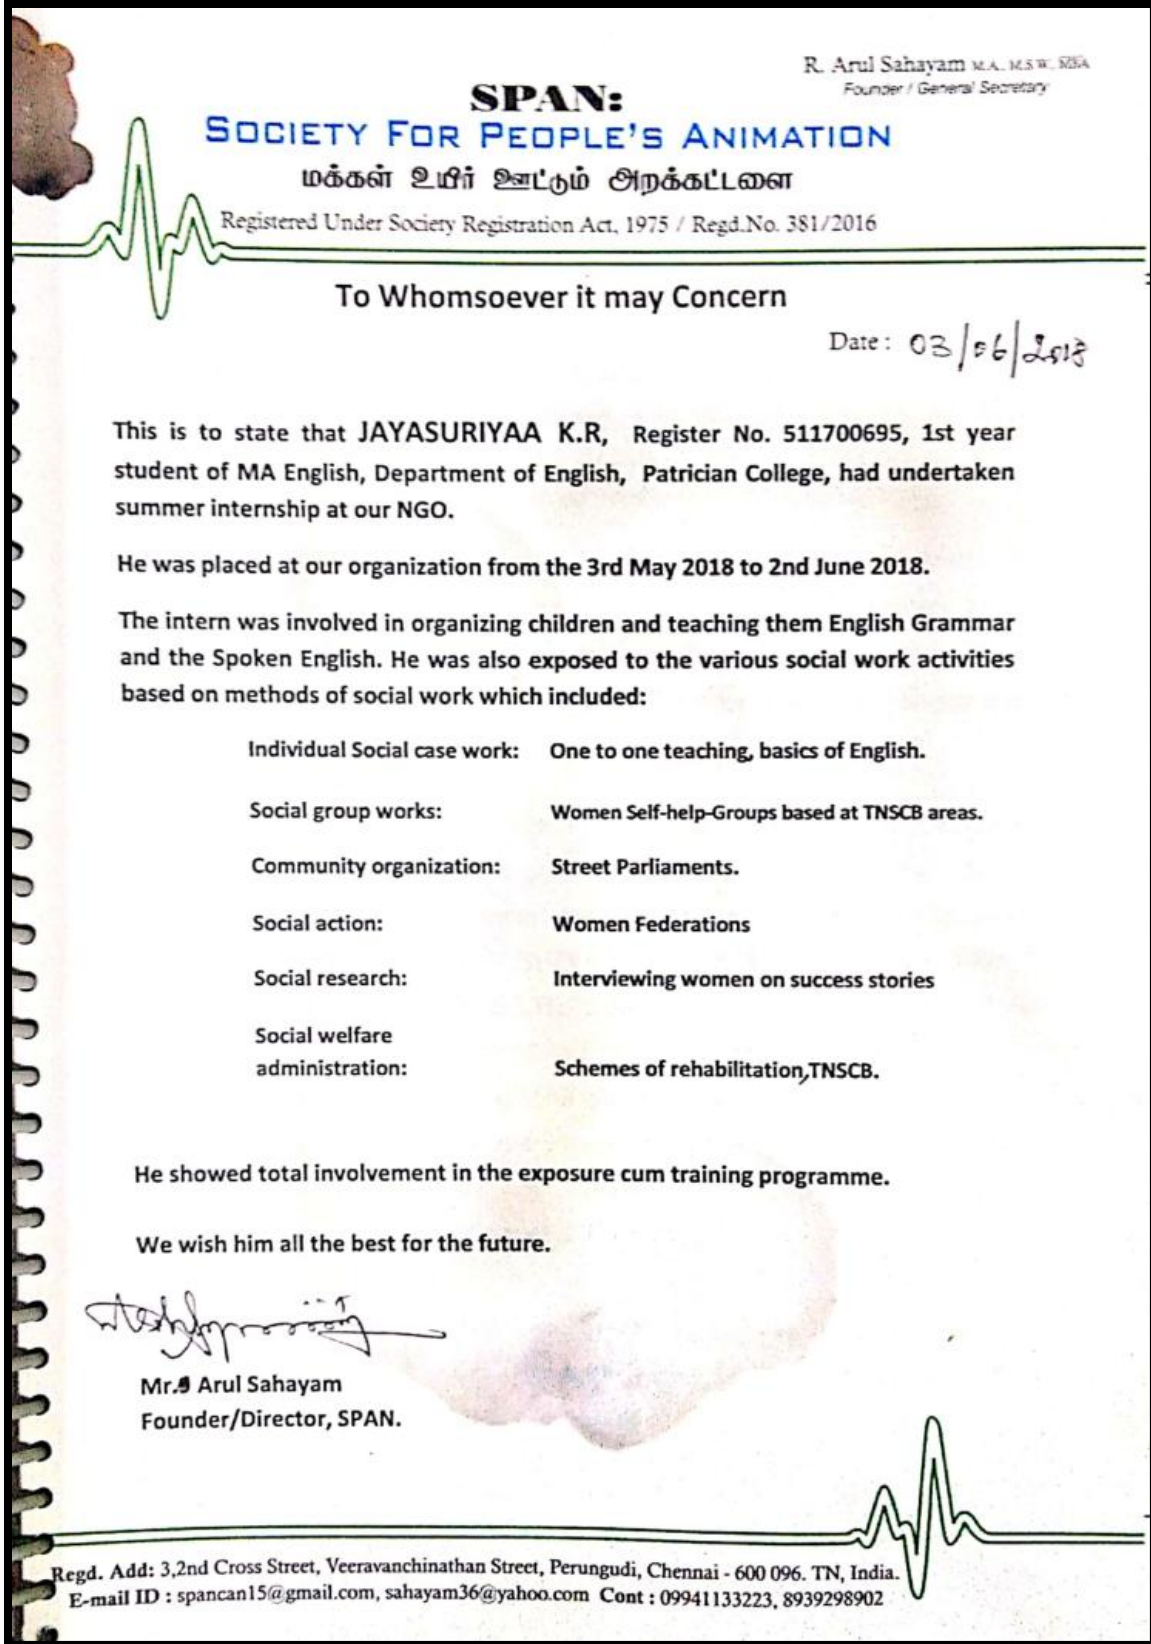 R. Arul Sahayam M.A., M.S.W., MBA
Founder / General Secretary
SPAN:
SOCIETY FOR PEOPLE'S ANIMATION
மக்கள் உயிர் ஊட்டும் அறக்கட்டளை
Registered Under Society Registration Act, 1975 / Regd.No. 381/2016
To Whomsoever it may Concern
Date : 03/06/2018
This is to state that JAYASURIYAA K.R, Register No. 511700695, 1st year
student of MA English, Department of English, Patrician College, had undertaken
summer internship at our NGO.
He was placed at our organization from the 3rd May 2018 to 2nd June 2018.
The intern was involved in organizing children and teaching them English Grammar
and the Spoken English. He was also exposed to the various social work activities
based on methods of social work which included:
Individual Social case work: One to one teaching, basics of English.
Social group works: Women Self-help-Groups based at TNSCB areas.
Community organization: Street Parliaments.
Social action: Women Federations
Social research: Interviewing women on success stories
Social welfare
administration: Schemes of rehabilitation,TNSCB.
He showed total involvement in the exposure cum training programme.
We wish him all the best for the future.
Mr. Arul Sahayam
Founder/Director, SPAN.
Regd. Add: 3,2nd Cross Street, Veeravanchinathan Street, Perungudi, Chennai - 600 096. TN, India.
E-mail ID : spancan15@gmail.com, sahayam36@yahoo.com Cont : 09941133223, 8939298902